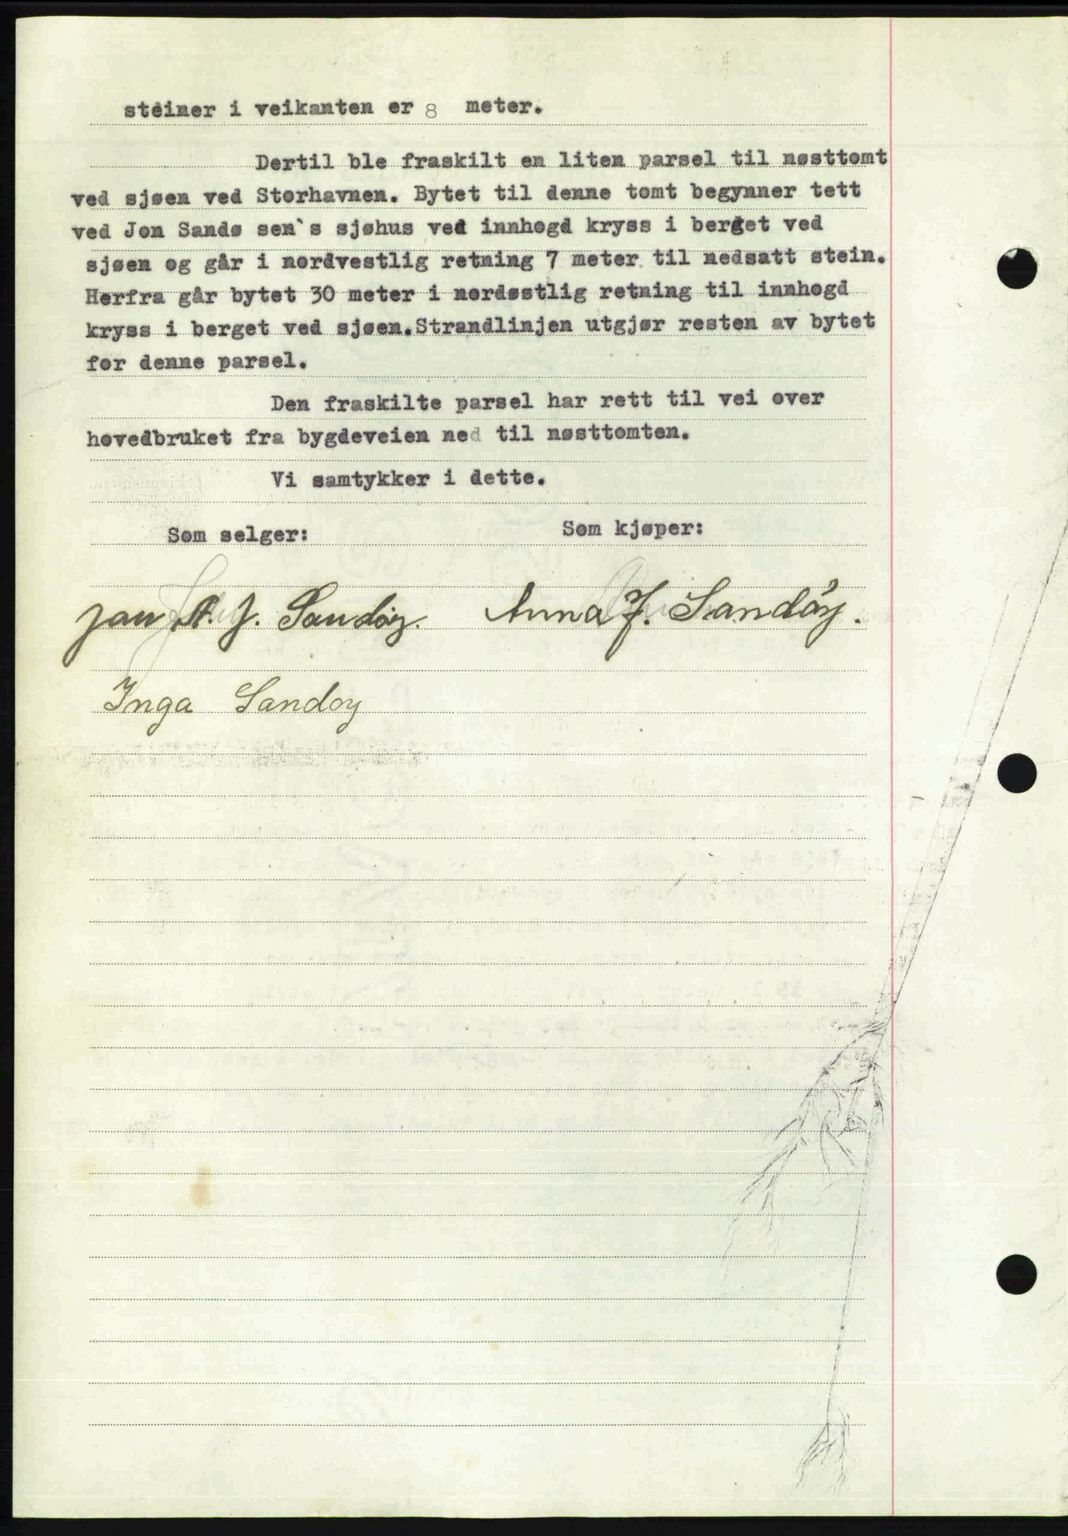 steiner i veikanten er 8 meter.
Dertil ble fraskilt en liten parsel til nøsttomt
ved sjøen ved Storhavnen. Bytet til denne tomt begynner tett
ved Jon Sandø sen`s sjøhus ved innhogd kryss i berget ved
sjøen og går i nordvestlig retning 7 meter til nedsatt stein.
Herfra går bytet 30 meter i nordøstlig retning til innhogd
kryss i berget ved sjøen.Strandlinjen utgjør resten av bytet
for denne parsel.
Den fraskilte parsel har rett til vei over
hovedbruket fra bygdeveien ned til nøsttomten.
Vi samtykker i dette.
Som selger: Som kjøper:
Jan A. J. Sandøy. Anna J. Sandøy.
Inga Sandoy